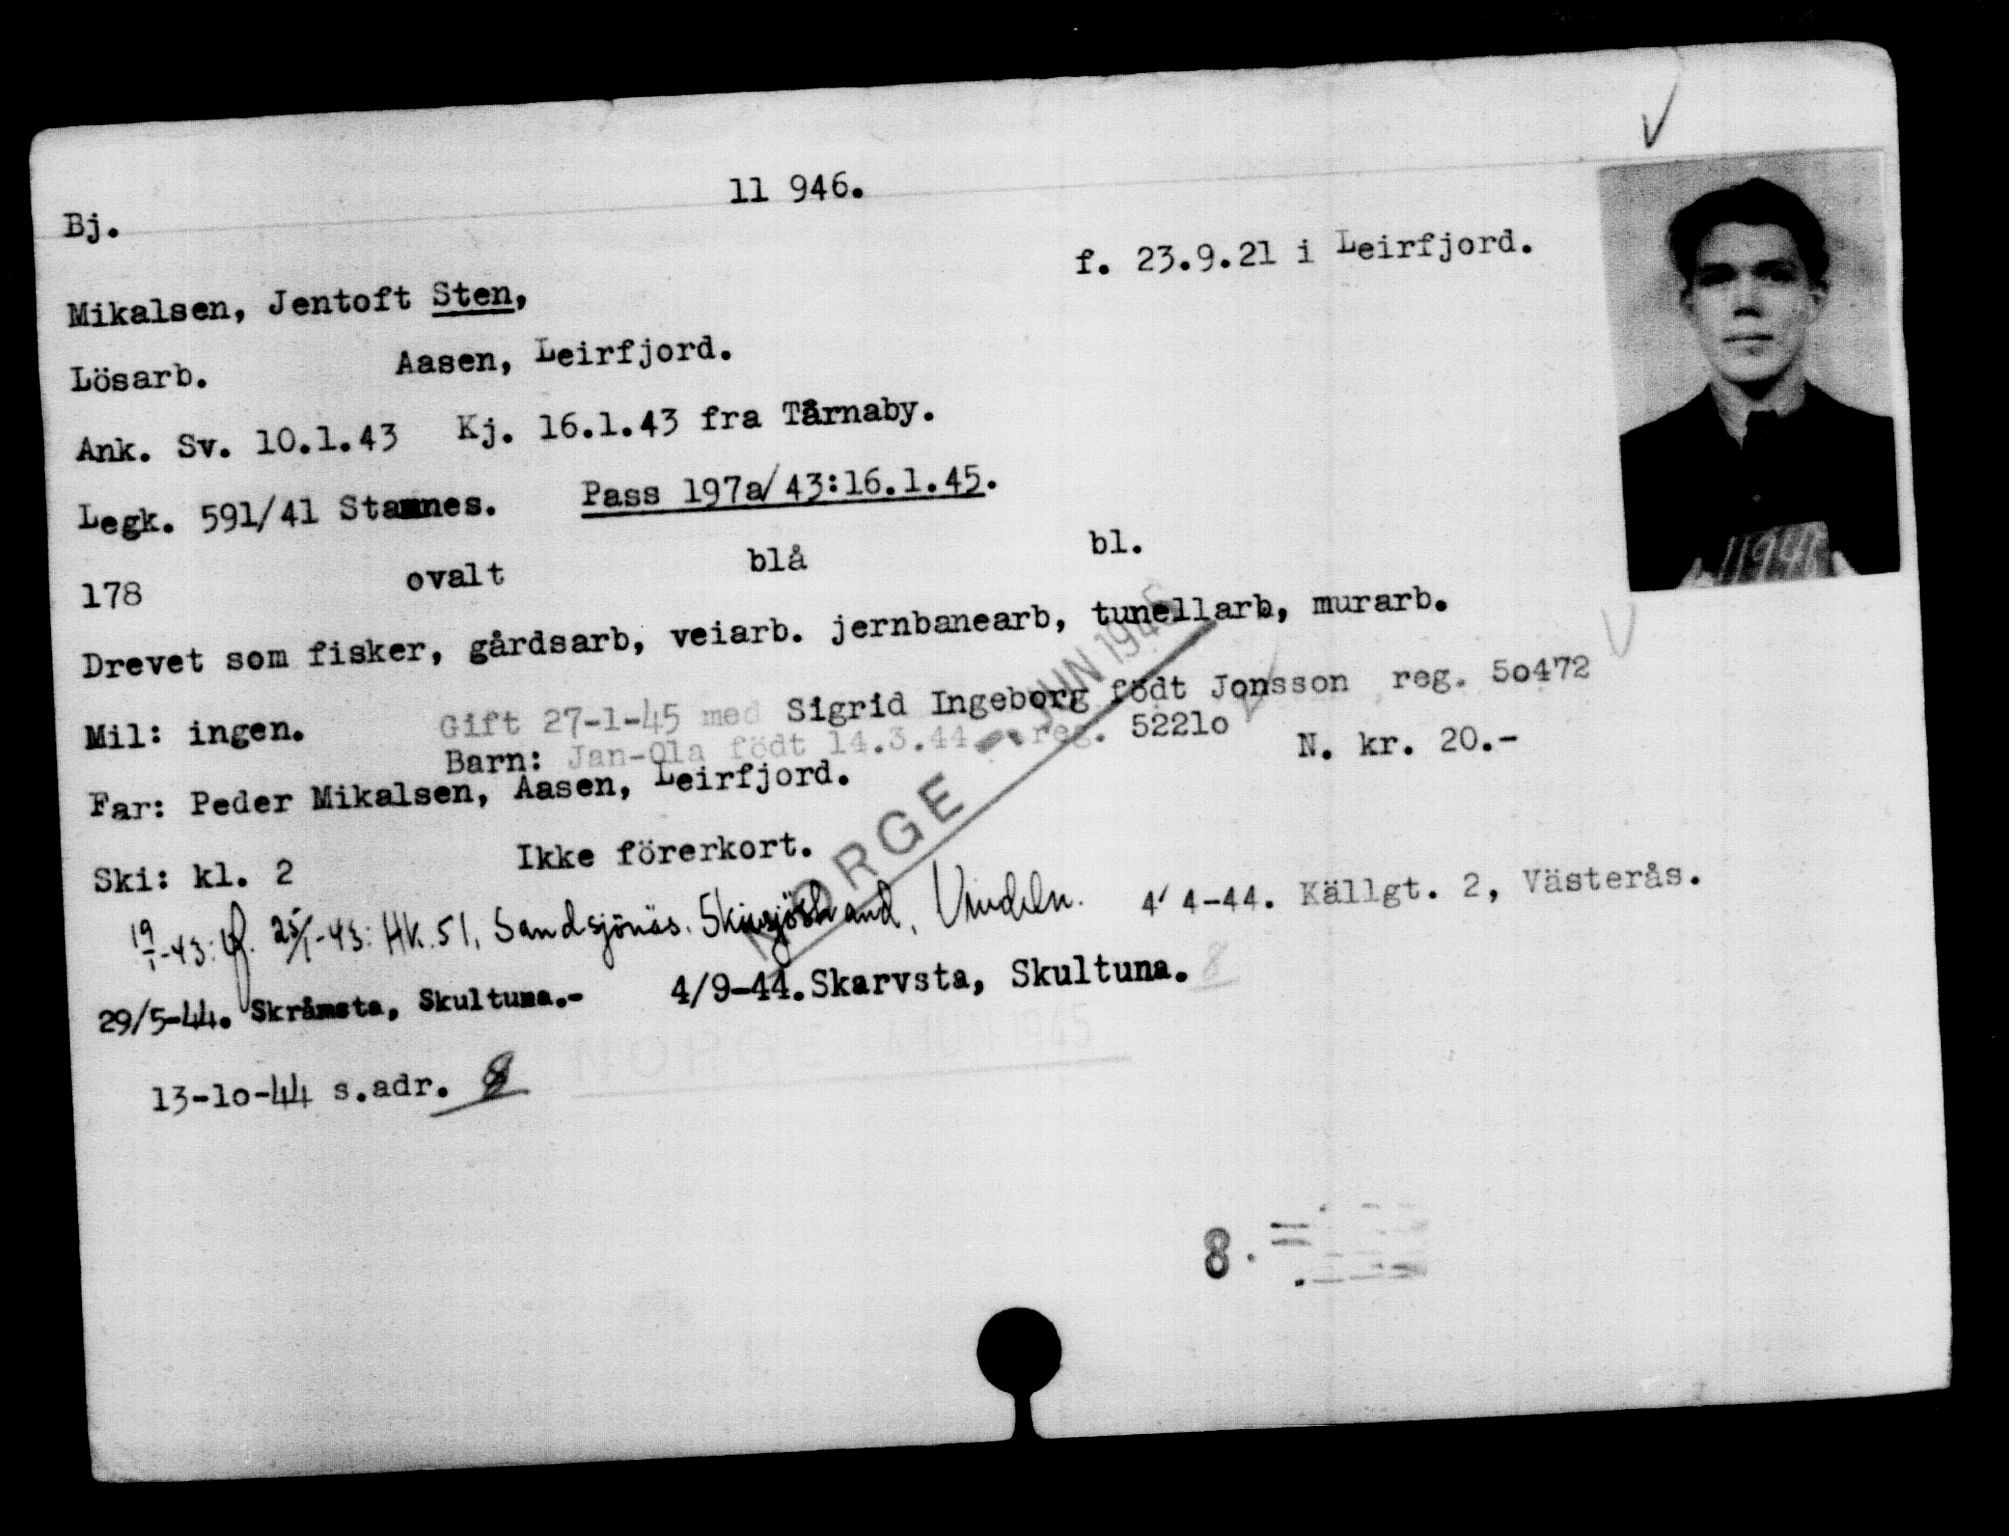 11 946.
Bj.
f. 23.9.21 i Leirfjord.
Mikalsen, Jentoft Sten,
Lösarb. Aasen, Leirfjord.
Ank. Sv. 10.1.43 Kj. 16.1.43 fra Tårnaby.
Legk. 591/41 Stamnes. Pass 197a/43:16.1.45.
178 ovalt blå bl.
Drevet som fisker, gårdsarb, veiarb. jernbanearb, tunellarb, murarb.
Mil: ingen. Gift 27-1-45 med Sigrid Ingeborg födt Jonsson reg. 5o472
Barn: Jan-Ola födt 14.3.44 reg. 5221o
N. kr. 20.-
Far: Peder Mikalsen, Aasen, Leirfjord.
Ski: kl. 2 Ikke förerkort.
NORGE JUN 1945
19/1-43: 25/1-43: HK. 51, Sandsjönäs. Vindeln. 4/4-44. Källgt. 2, Västerås.
29/5-44. Skråmsta, Skultuna.- 4/9-44. Skarvsta, Skultuna. 8
NORGE JUN 1945
13-1o-44 s.adr. 8
8.
11946